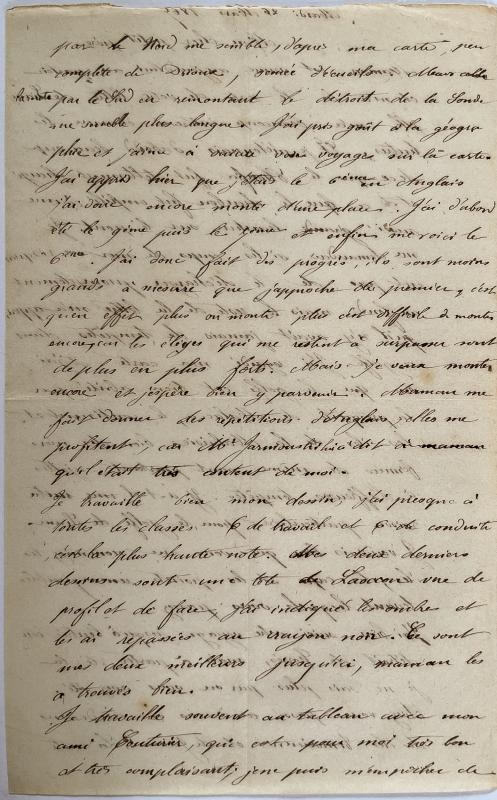 par le Nord me semble, d'après ma carte, peu
complète de
la route par le Sud en remontant le détroit de la Sonde
me semble plus longue. J'ai pris goût à la géogra
phie et j'aime à suivre vos voyages sur la carte.
J'ai appris hier que j'étais le 6ème en Anglais
j'ai donc encore monté d'une place. J'ai d'abord
été le puis le et enfin me voici le
6ème. J'ai donc fait des progrès, ils sont moins
grands à mesure que j'approche du premier, c'est
qu'en effet plus on monte plus c'est difficile de monter
encore, car les élèves qui me restent à surpasser sont
de plus en plus forts. Mais je veux monter
encore et j'espère bien y parvenir. Maman me
fait donner des répétitions d'Anglais, elles me
profitent, car Mr a dit à maman
qu'il était très content de moi.
Je travaille bien mon dessin, j'ai presque à
toutes les classes 6 de travail et 6 de conduite
c'est la plus haute note. Mes deux derniers
dessins sont une tête de Laocoon vue de
profil et de face, j'ai indiqué les ombres et
les ai repassées au crayon noir. Ce sont
mes deux meilleurs jusqu'ici, maman les
a trouvés bien.
Je travaille souvent au tableau avec mon
ami Couturier, qui est pour moi très bon
et très complaisant. je ne puis m'empêcher de